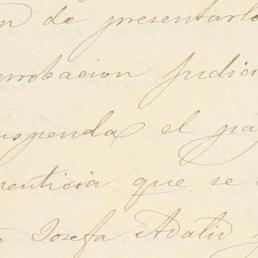 n de presentarlo
probacion judici
uspenda el pa
menticia que se
Josefa Adalid